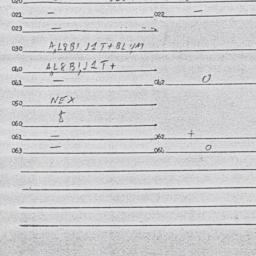 020
021 — 022 —
023 —
030 A,L8B!J1T+BL!M
040 A,L8B!,J1T+
041 — 042 0
050 NEX
060
061 — 062 +
063 — 064 0